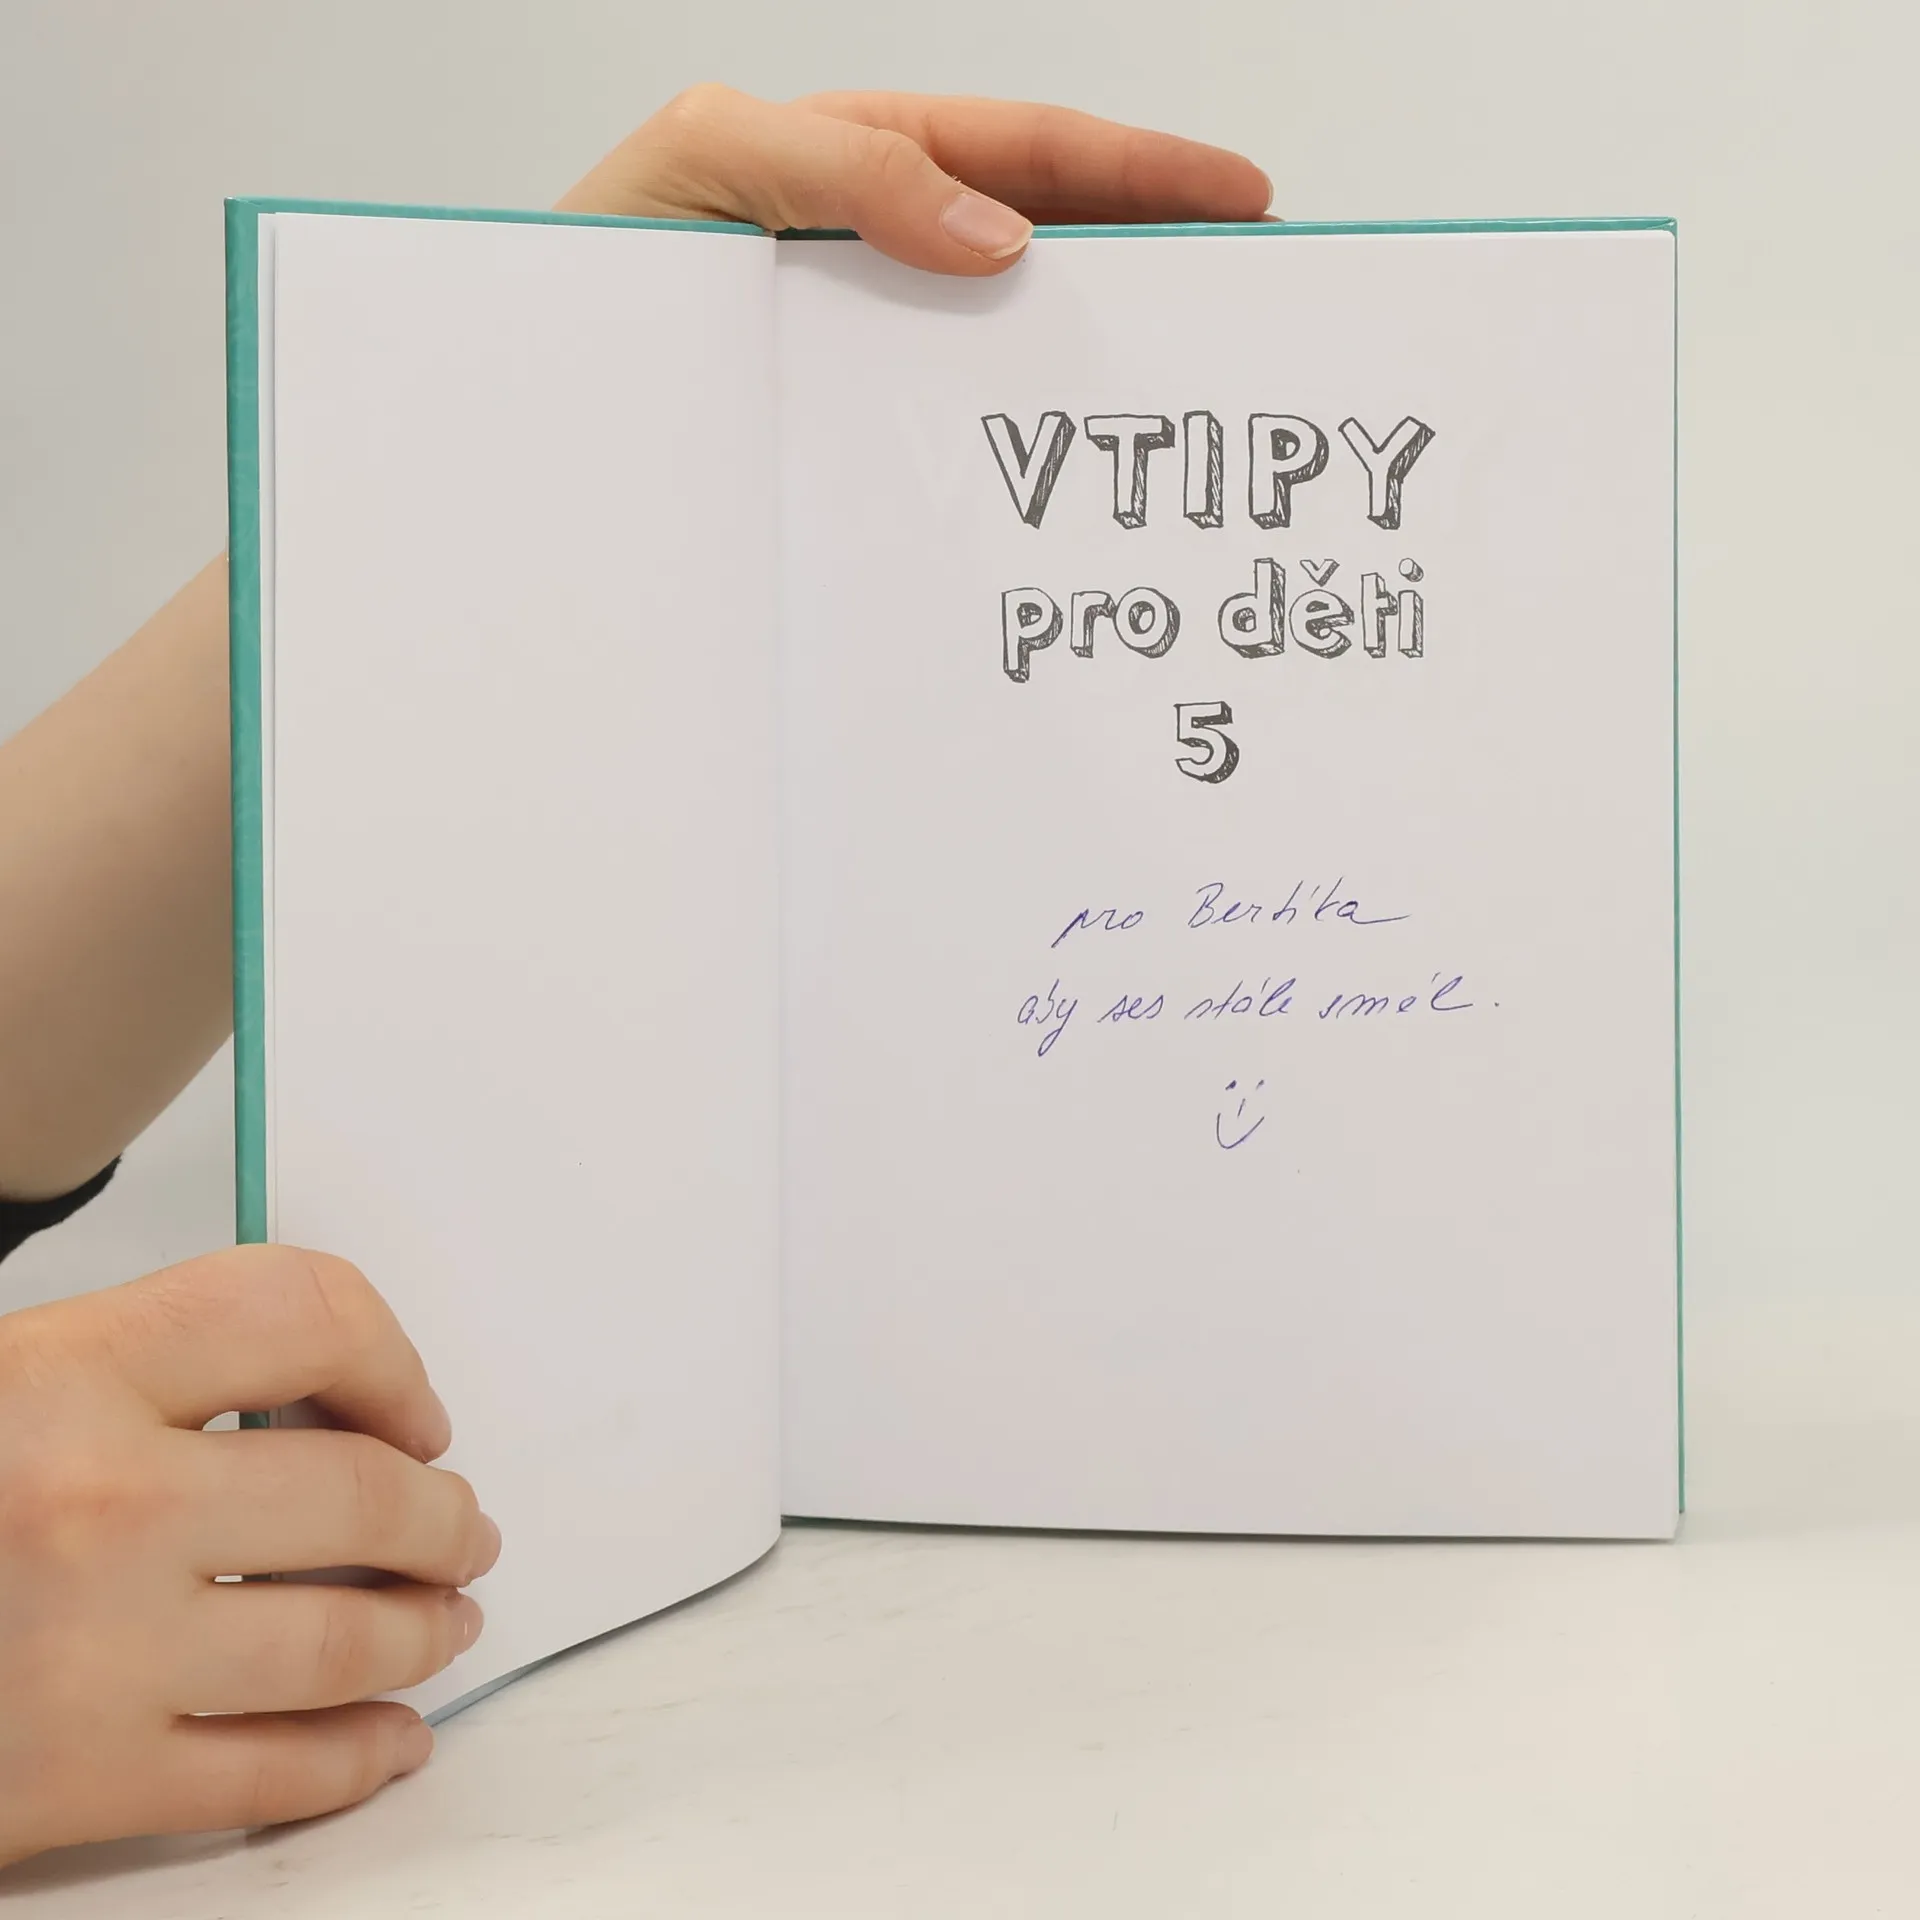 VTIPY
pro děti
5
pro Bertíka
aby ses stále smál.